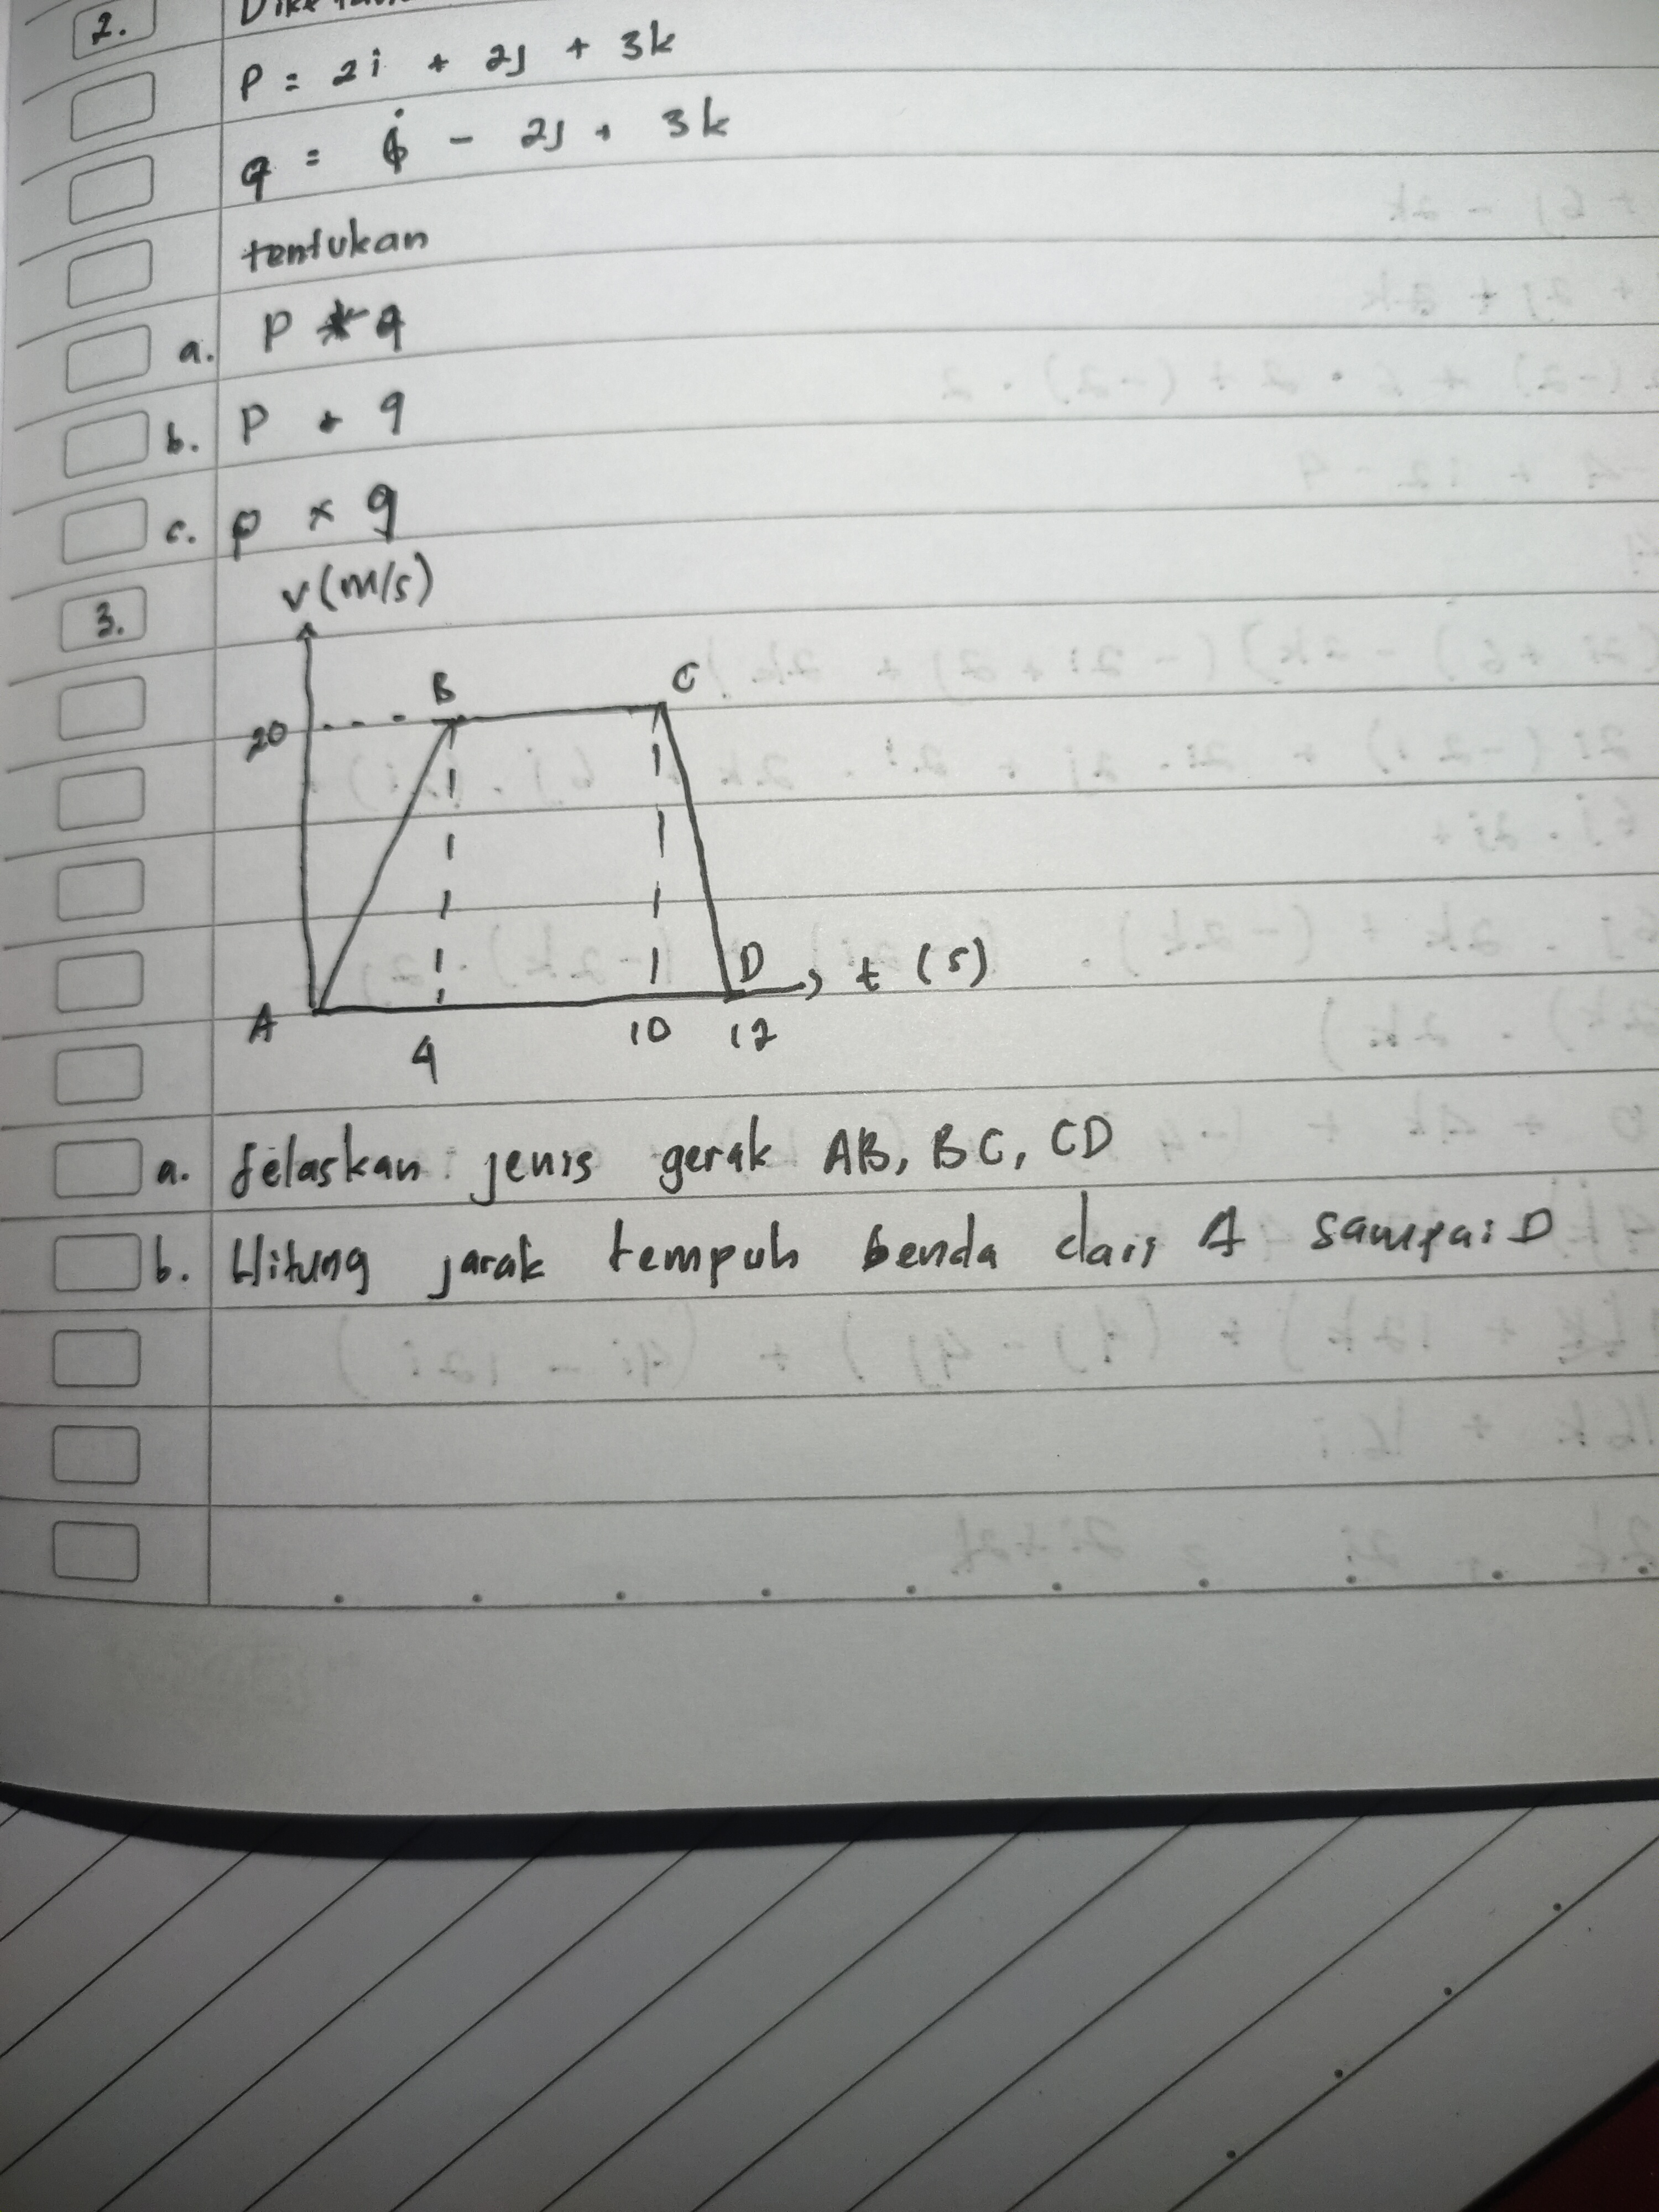 2.
P = 2i + 2j + 3k
q = i - 2j + 3k
tentukan
a. P * q
b. P + q
c. p x q
3. v (m/s)
B C
20
D t (s)
A
4 10 12
a. Jelaskan jenis gerak AB, BC, CD
b. Hitung jarak tempuh benda dari A sampai D